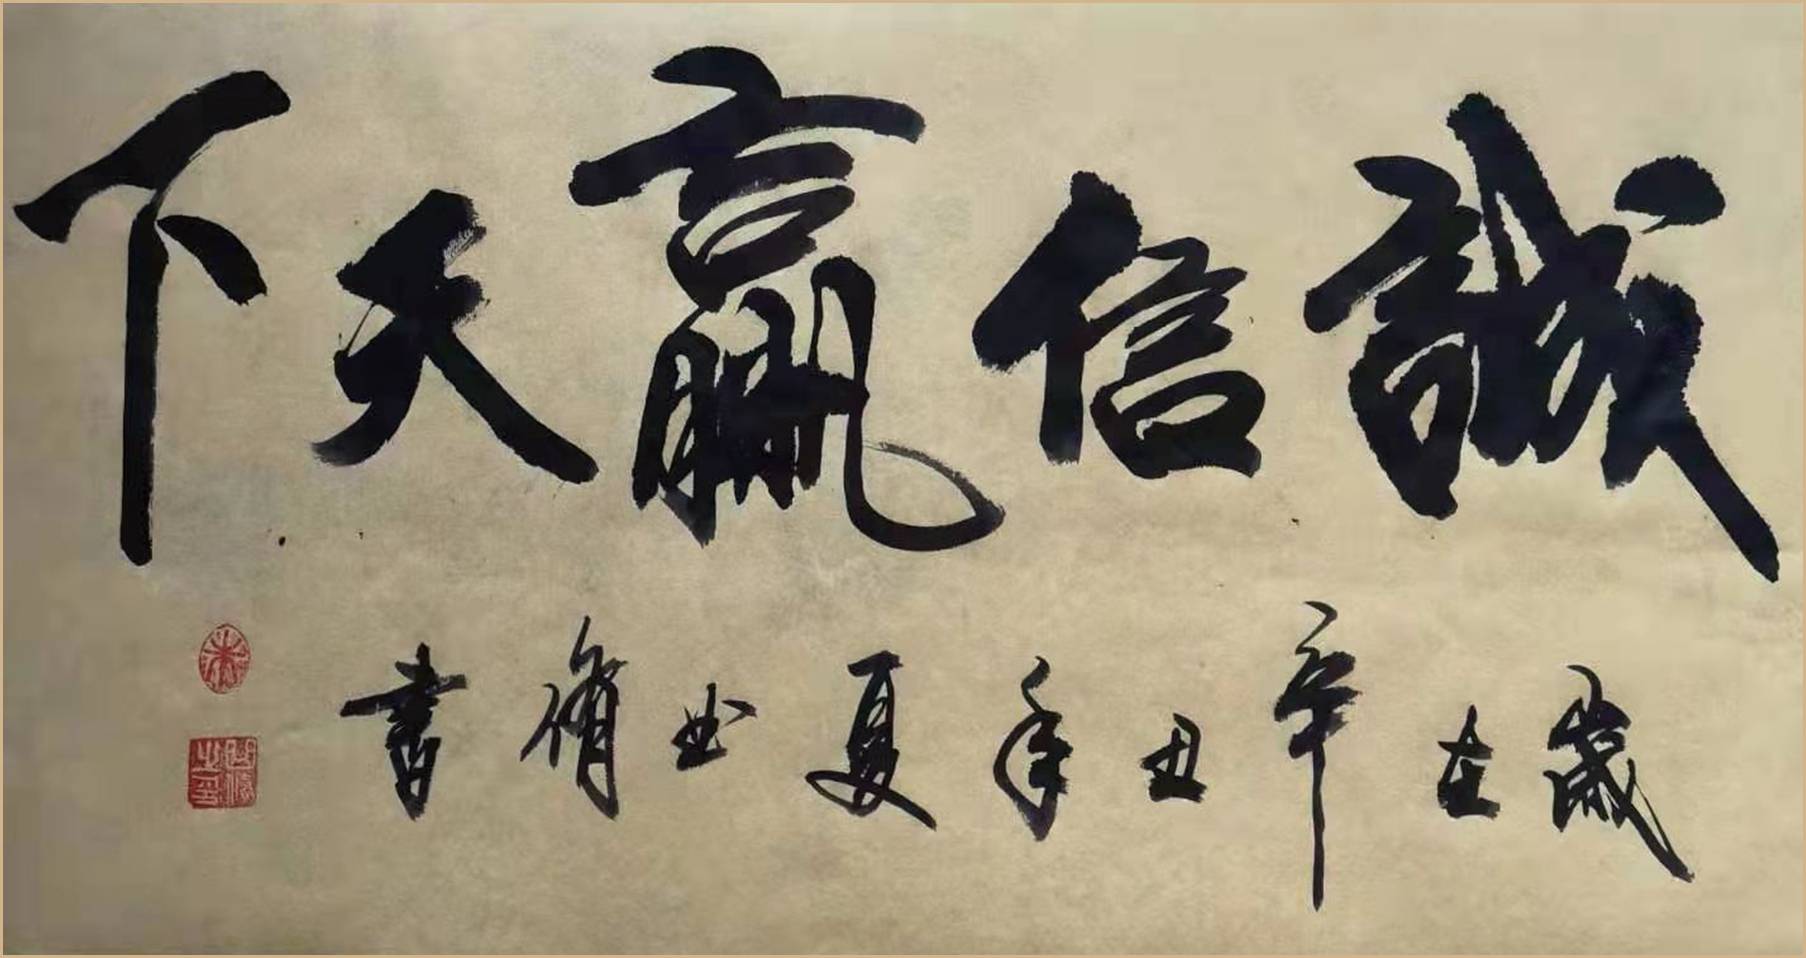 誠信贏天下
歲在辛丑年夏世脩書
朱